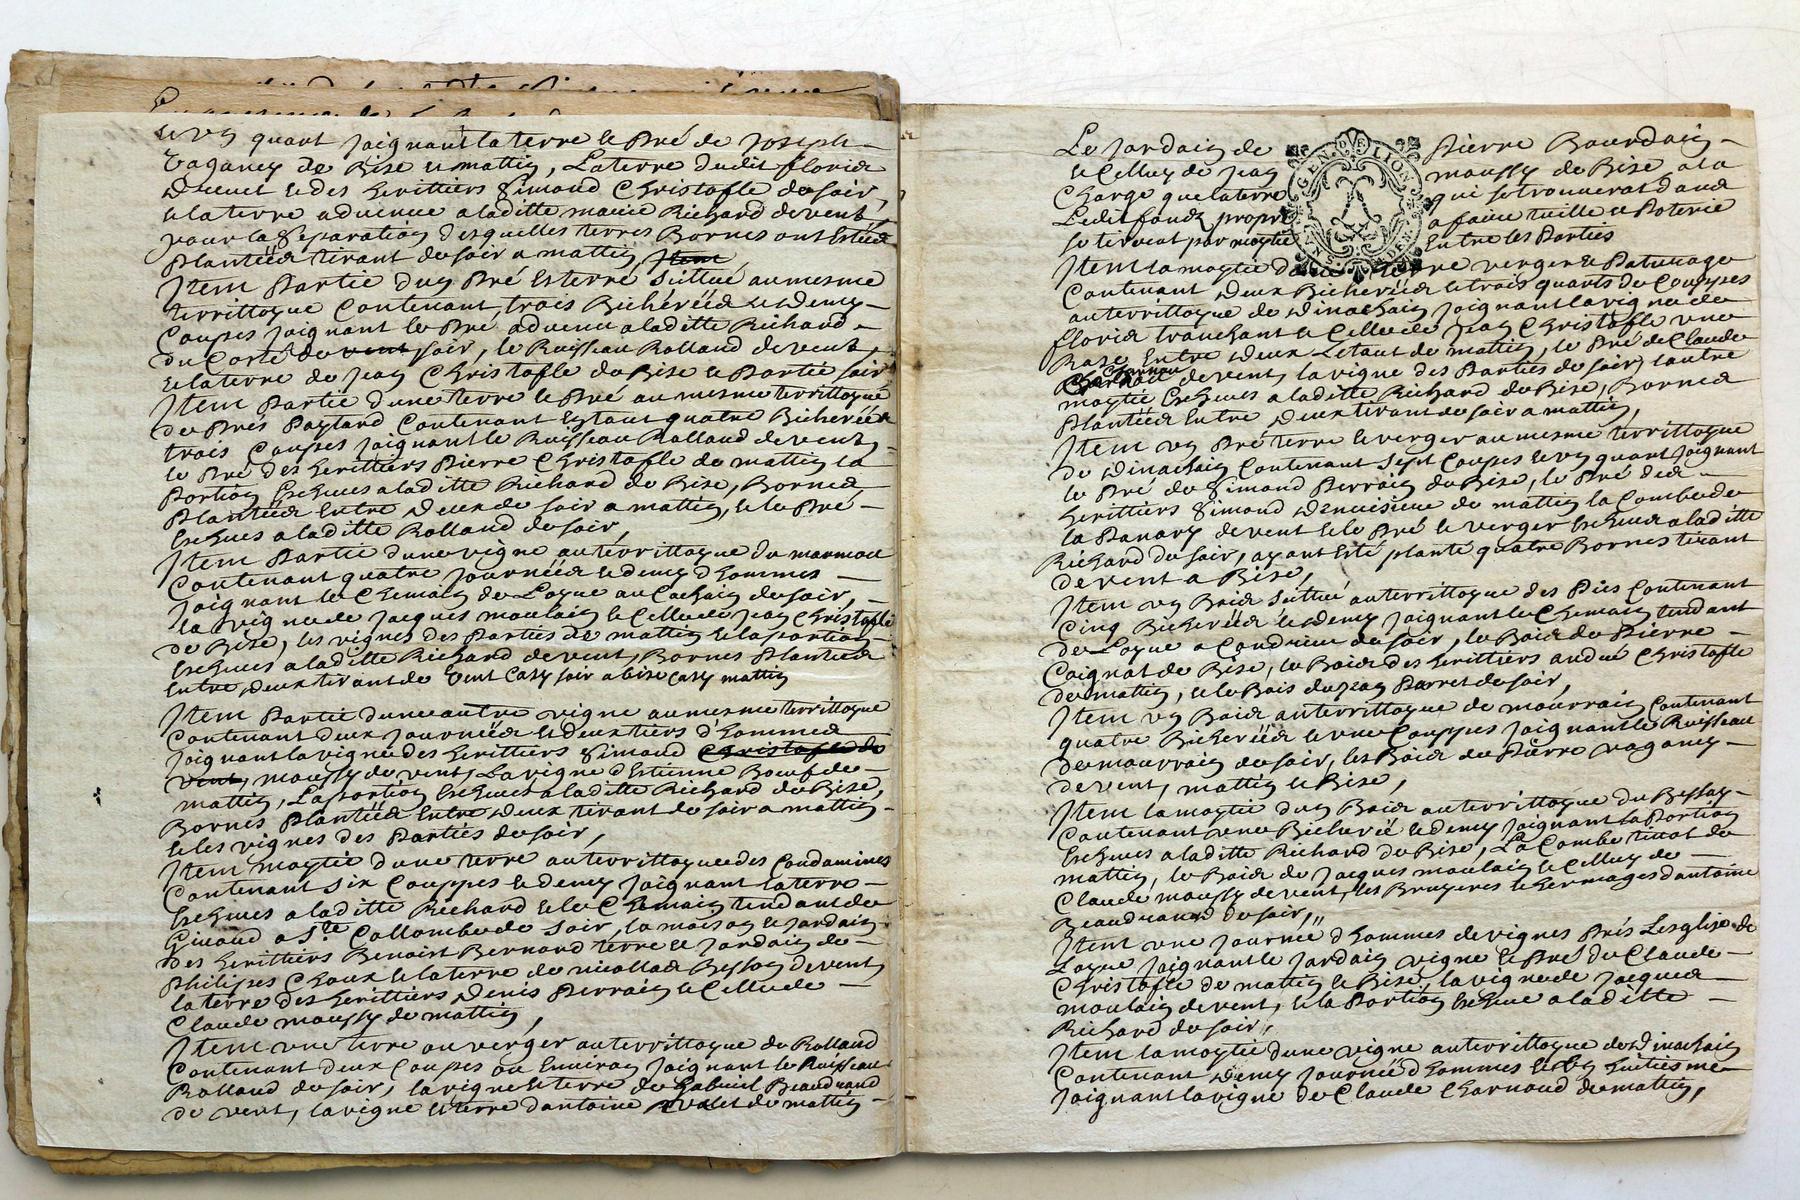 et un quart joignant la terre et pré de Joseph
vaganey de Bise et mattin, La terre dudit florid
et des herittiers Simond Christofle de soir,
et la terre advenue a laditte mariée Richard de vent,
pour la separation desquelles terres Bornes ont Estéés
plantéés tirant de soir a mattin, Item
Item Partie d'un Pré Et terre sittué au mesme
territtoyre Contenant, trois Bicheréés et demy
Coupes joignant le Pré advenu a laditte Richard
du Costé de vent soir, le Ruisseau Rolland de vent,
et la terre de jean Christofle de Bise et Partie soir
Item Partie d'une terre et Pré au mesme territtoyre
de Prés Contenant Environ quatre Bicheréés
trois Coupes joignant le Ruisseau Rolland de vent,
le Pré des herittiers Pierre Christofle de mattin la
Portion Escheues a laditte Richard de Bise, Bornes
Plantéés Entre deux de soir a mattin, et le Pré
Escheues a laditte Rolland de soir,
Item Partie d'une vigne au territtoyre du marmou
Contenant quatre journéés et demy d'hommes
joignant le Chemin de Loyre au de soir,
la vigne de jacques moulain et Celle de jean Christofle
de Bise, les vignes des Parties de mattin et la portion
Escheues a laditte Richard de vent, Bornes Plantéés
Entre deux tirant de vent Casy soir a bise casy mattin
Item Partie d'une autre vigne au mesme territtoyre
Contenant deux journéés et deux tiers d'hommes
joignant la vigne des herittiers Simond Christofle de
vent, moussy de vent, La vigne d'Estienne Boeuf de
mattin, La portion Escheues a laditte Richard de Bise,
Bornes Plantéés Entre deux tirant de soir a mattin
et les vignes des Parties de soir,
Item moytié d'une terre au territtoyre des Condamines
Contenant six Couppes et demy joignant la terre
Escheues a laditte Richard et le Chemin tendant de
Givord a Ste Collombe de soir, la maison et jardain
des herittiers Benoist Bernard terre et jardain de
philipes Chaux et la terre de nicollas Besson de vent
la terre des herittiers Denis Perrain et Celle de
Claude moussy de mattin,
Item une terre au verger au territtoyre de Rolland
Contenant deux Coupes ou Environ joignant le Ruisseau
Rolland de soir, la vigne et terre de Gabriel Beaudrand
de vent, la vigne et terre d'antoine valet de mattin
Le jardain de Pierre Bourdain
et Celluy de jean moussy de Bise a la
Charge que la terre qui se trouverat dans
Ledit fondz propre a faire tuille et Poterie
se tireront par moytié Entre les Parties
Item la moytié d'une terre verger et Paturage
Contenant deux Bicheréés et trois quarts de Couppes
au territtoyre de joignant la vigne de
florid tranchant et Celle de jean Christofle une
Raze Entre deux Estant de mattin, le Pré de Claude
Charnou de vent, la vigne des Parties de soir, l'autre
moytié Escheues a laditte Richard de Bise, Bornes
Plantéés Entre deux tirant de soir a mattin,
Item un Pré terre et verger au mesme territtoyre
de Contenant sept Coupes et un quart joignant
le Pré de Simond Perrain de Bise, le Pré des
herittiers Simond de mattin la Combe de
la Panary de vent et le Pré et verger Escheus a laditte
Richard de soir, ayant Esté planté quatre Bornes tirant
de vent a Bise,
Item un Bois sittué au territtoyre des Pies Contenant
Cinq Bicheréés et demy joignant le Chemin tendant
de Loyre a Condrieu de soir, le Bois de Pierre
Coignat de Bise, le Bois des herittiers andré Christofle
de mattin, et le Bois de jean Parret de soir,
Item un Bois au territtoyre de mourrain Contenant
quatre Bicheréés et une Couppes joignant le Ruisseau
de mourrain de soir, les Bois de Pierre vaganey
de vent, mattin et Bise,
Item la moytié d'un Bois au territtoyre du Bessay
Contenant une Bicheréé et demy joignant la Portion
Escheues a laditte Richard de Bise, La Combe de
mattin, le Bois de jacques moulain et Celluy de
Claude moussy de vent, les Bruyeres et hermages d'antoine
Beaudrand de soir,
Item une journéé d'hommes de vignes Prés Lesglise de
Loyre joignant le jardain vigne et Pré de Claude
Christofle de mattin et Bise, la vigne de jacques
moulain de vent, et la Portion Escheue a laditte
Richard de soir,
Item la moytié d'une vigne au territtoyre de
Contenant demy journéé d'hommes et un huitiesme
joignant la vigne de Claude Charnoud de mattin,
GEN. DE LION